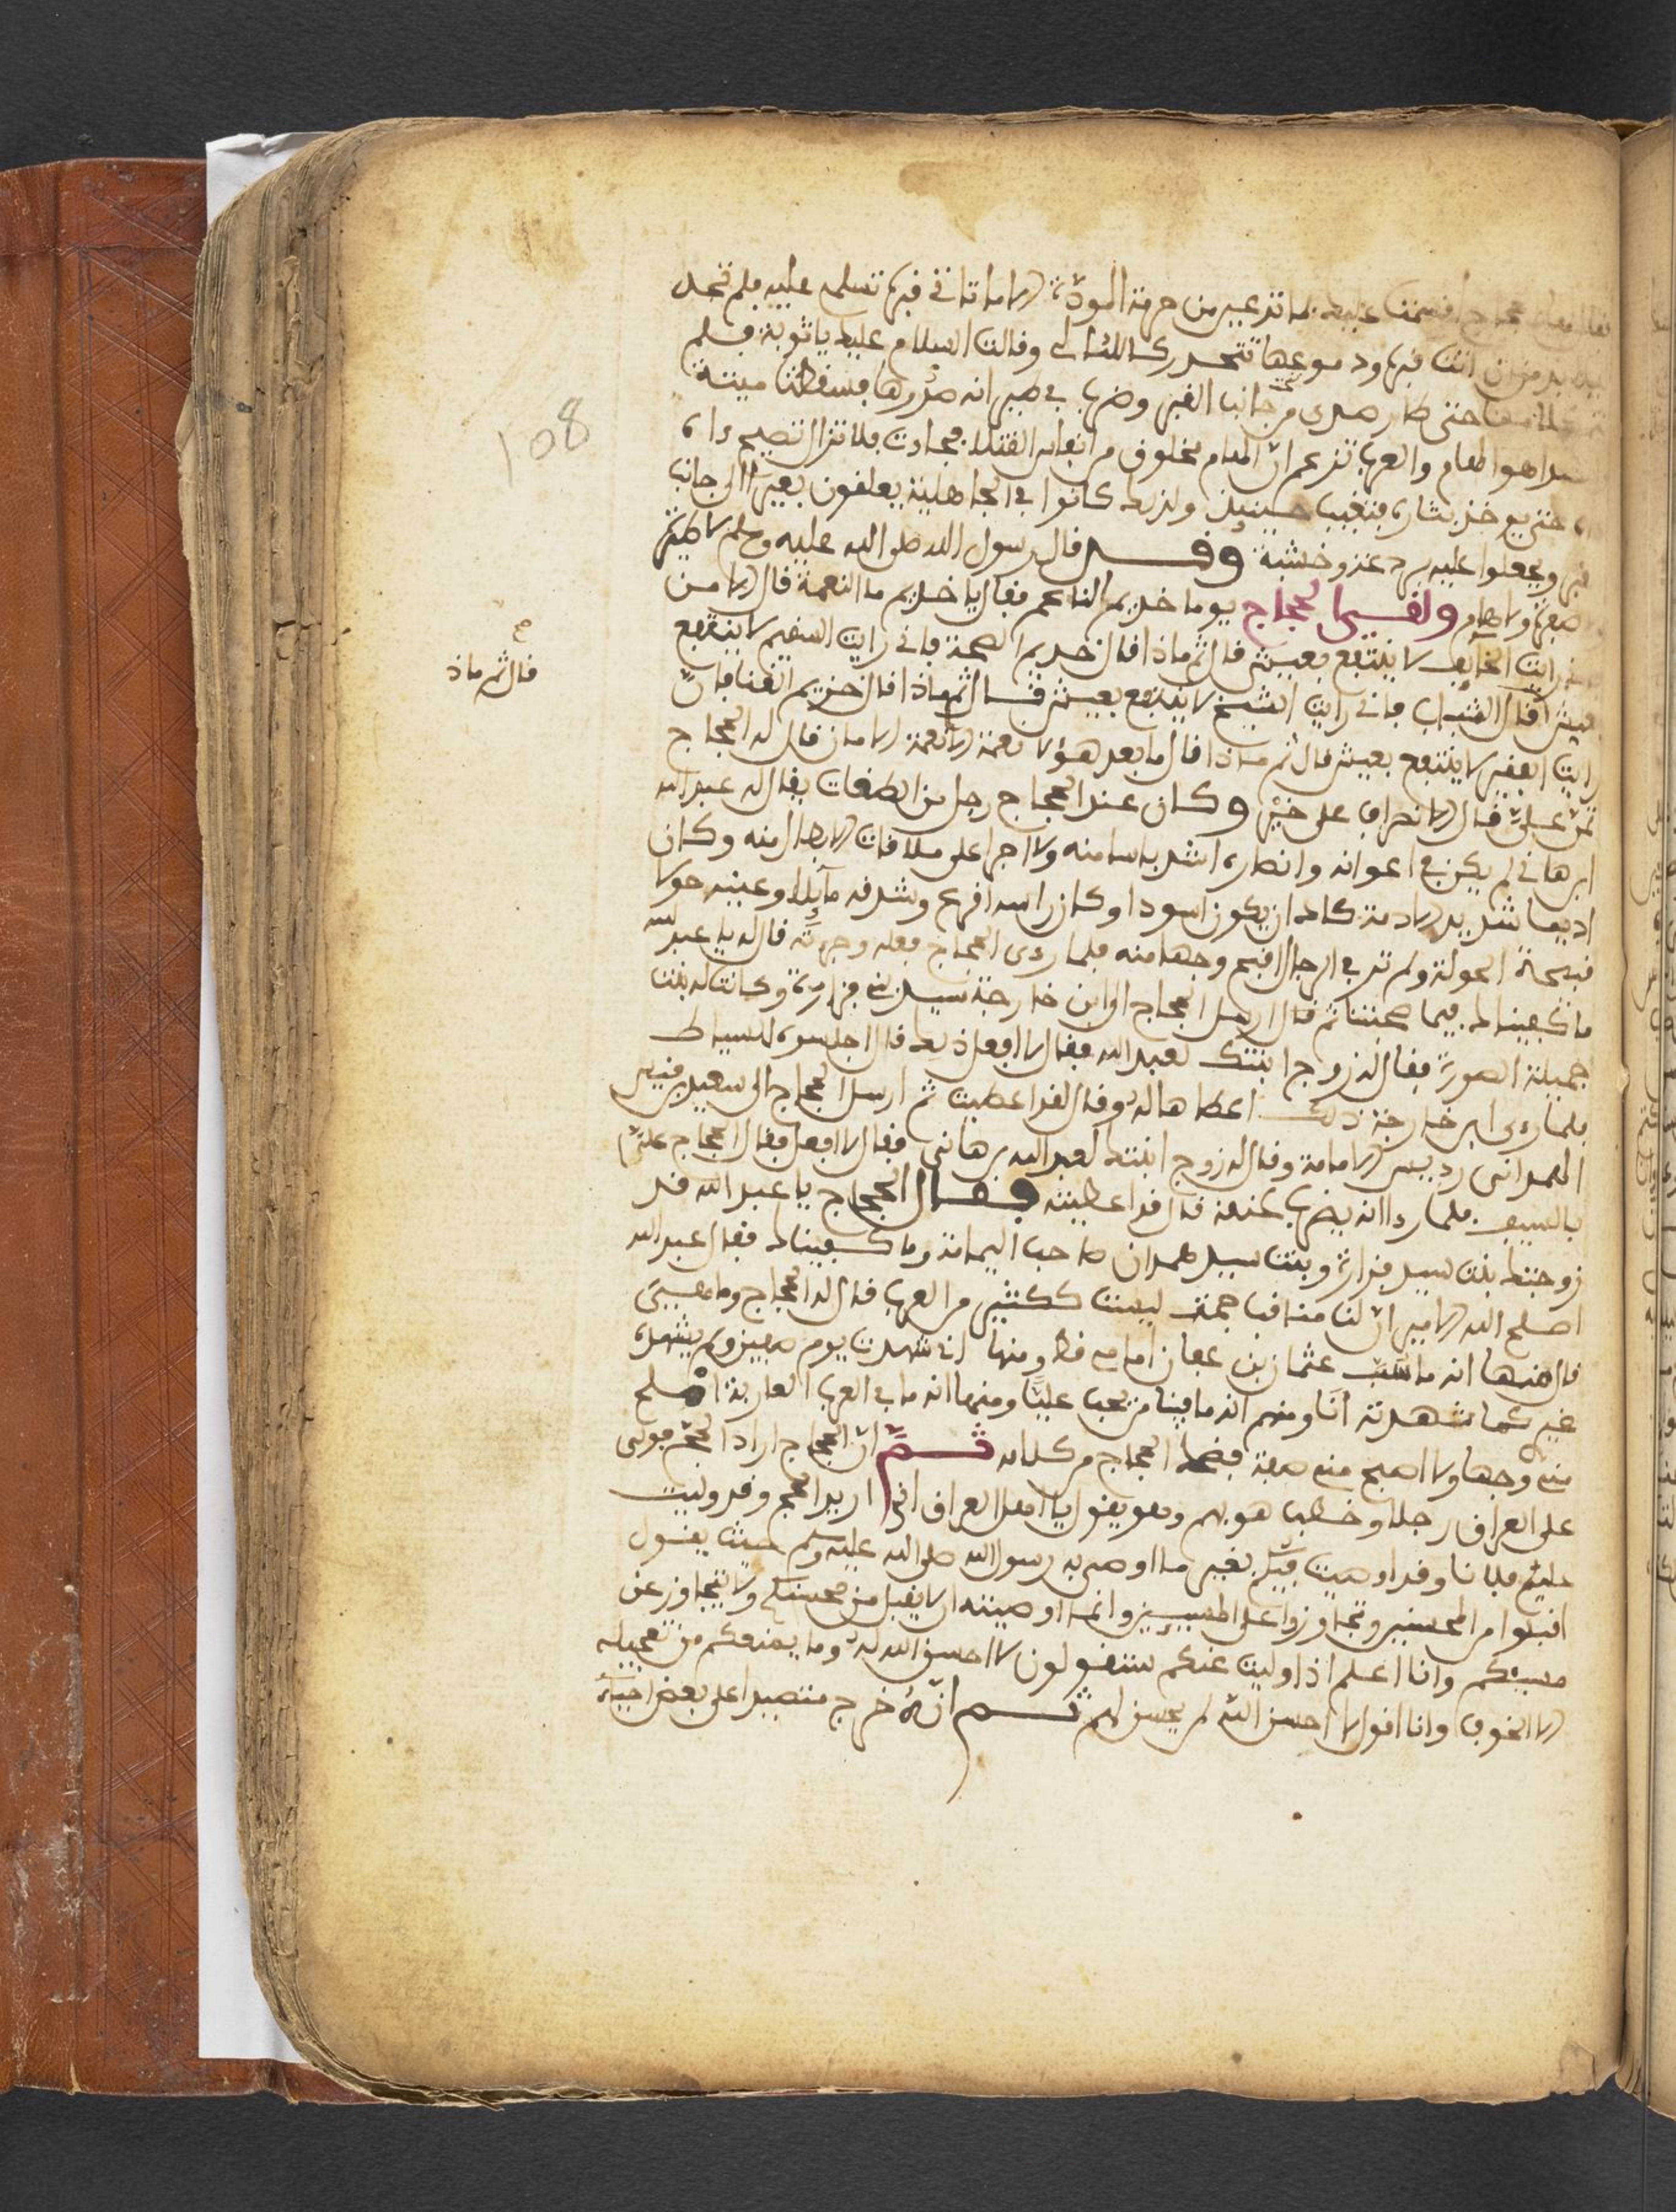 اقسمت عليك بما تدعيه من حرمة المودة الا ما تاتي قبره تسلم عليه فلم تجد
اتت قبره ودموعها تتحدر كاللئالي وقالت السلام عليك يا توبة فلم
حتى طار صدى من جانب القبر وضرب في صدرها فسقطت ميتة
هو الهام والعرب تزعم ان الهام مخلوق من انفاس القتلا فلا تزال تصيح
حتى يوخذ بثاره فتغيب حينيذ ولذلك كانوا في الجاهلية يعلفون بعيرا الى جانب
ويجعلوا عليه وخشبة وقد قال رسول الله صلى الله عليه وسلم لا طيرة
ولا هام ولقي الحجاج يوما خديم الناعم فقال يا خديم ما النعمة قال الامن
رايت الخايف لا ينتفع بعيش قال ثم ماذا قال خديم الصحة فاني رايت السقيم لا ينتفع
بعيش قال الشباب فاني رايت الشيخ لا ينتفع بعيش قال ثم ماذا قال خديم الغنا فان
رايت الفقير لا ينتفع بعيش قال ثم ماذا قال ما بعد هؤلا نعمة الا نعمة الامان قال له الحجاج
تمن علي قال الانصراف على خير وكان عند الحجاج رجل من الطغات يقال له عبد الله
ابرهاني لم يكن في اعوانه وانصاره اشد باسا منه ولا اجرا على ملاقات الابطال منه وكان
ادبما شديد الادمة كاد ان يكون اسودا وكان راسه اقرع وشدقه مآيلا وعينيه حولا
قبيحة الحولة ولم تر في الرجال اقبح وجها منه فلما رءى الحجاج فعله وجرءته قال له يا عبد الله
ما كفيناك فيما صحبتنا ثم قال ارسل الحجاج الى ابن خارجة سيد بني فزارة وكانت له بنت
جميلة الصورة فقال له زوج ابنتك لعبد الله فقال لا افعل ذلك قال اجلسوه للسياط
فلما رءى ابن خارجة ذلك اعطاها له وقال لقد اعطيت ثم ارسل الحجاج الى سعيد بن قيس
الهمداني رديس الامامة وقال له زوج ابنتك لعبد الله برهاني فقال لا افعل فقال الحجاج علي
بالسيف فلما رءا انه يضرب عنقه قال قد اعطيته فقال الحجاج يا عبد الله قد
زوجتك بنت سيد فزارة وبنت سيد همدان صاحب اليمامة وما كفيناك فقال عبد الله
اصلح الله الامير ان لنا مناقب جمة ليست لكثير من العرب قال له الحجاج وما هي
قال منها انه ما سب عثمان بن عفان امام قط ومنها اني شهدت يوم صفين ولم يشهده
غير كما شهدته انا ومنهم انه ما فينا من يحب عليا ومنها انه ما في العرب العاربة املح
مني وجها ولا اصبح مني صفة فضحك الحجاج من كلامه ثم ان الحجاج اراد الحج فولى
على العراق رجلا وخطب هو بهم وهو يقول يا اهل العراق اني اريد الحج وقد وليت
عليكم فلانا وقد اوصيت فيكم بغير ما اوصى به رسول الله صلى الله عليه وسلم حيث يقول
اقبلوا من المحسنين وتجاوزوا على المسيين وانما اوصيته الا يقبل من محسنكم ولا يتجاوز عن
مسيئكم وانا اعلم اذا وليت عنكم ستقولون لا احسن الله له وما يمنعكم من تعجيله
الا الخوف وانا اقول لا احسن الله لم يحسن لهم ثم انه خرج متصيدا على بعض احياء
قال ثم ماذ
108